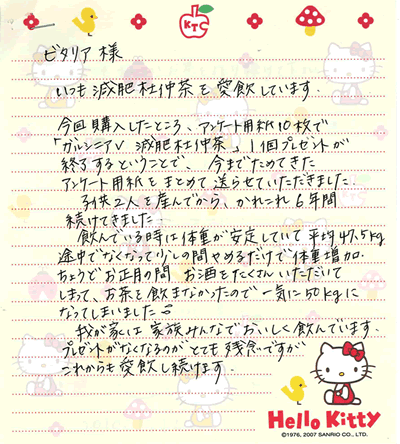 KTC
ビタリア 様
いつも減肥杜仲茶を愛飲しています。
今回購入したところ、アンケート用紙10枚で
「ガルシニアV 減肥杜仲茶」1個プレゼントが
終了するということで、今までためてきた
アンケート用紙をまとめて送らせていただきました。
子供2人を産んでから、かれこれ6年間
続けてきました。
飲んでいる時は体重が安定していて平均47.5kg
途中でなくなって少しの間やめるだけで体重増加。
ちょうどお正月の間 お酒をたくさんいただいて
しまって、お茶を飲まなかったので一気に50kgに
なってしまいました
我が家は家族みんなでおいしく飲んでいます。
プレゼントがなくなるのがとても残念ですが
これからも愛飲し続けます。
Hello Kitty
©1976, 2007 SANRIO CO., LTD.